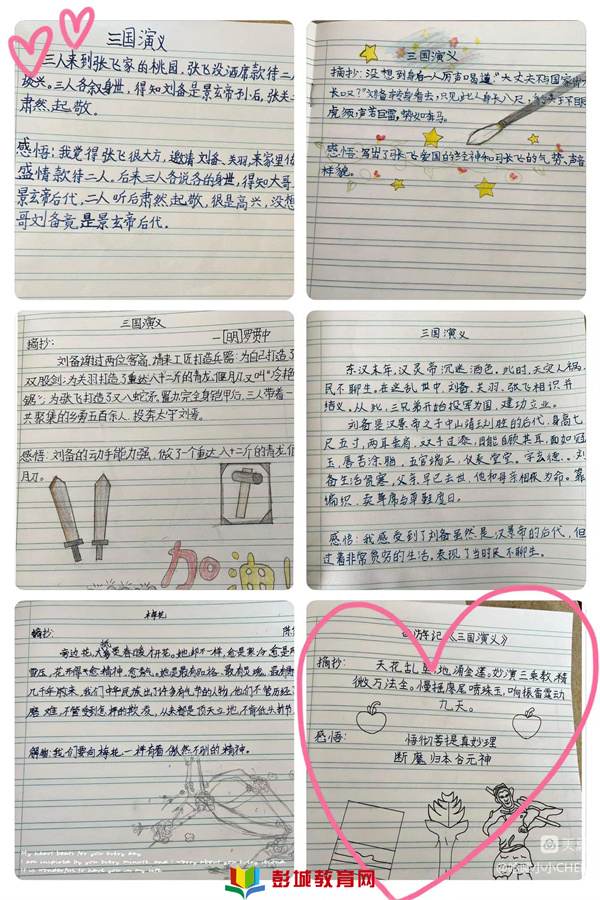 三国演义
三人来到张飞家的桃园,张飞设酒席款待二人
三人各叙身世,得知刘备是景玄帝孙后,张关二
肃然起敬。
感悟:我觉得张飞很大方,邀请刘备、关羽,来家里
盛情款待二人。后来三人各说各的身世,得知大哥
景玄帝后代,二人听后肃然起敬,很是高兴,没想
哥刘备竟是景玄帝后代。
三国演义
摘抄:没想到身后一人厉声喝道:"大丈夫不与国家
长叹?"刘备转身看去,只见此人身长八尺,
虎须,声若巨雷,势如奔马。
感悟:写出了张飞爱国的精神和张飞的气势、声音
样貌。
三国演义
摘抄:
—[明]罗贯中
刘备谢过两位客商,请来工匠打造兵器:为自己打造了
双股剑;为关羽打造了重达八十二斤的青龙偃月刀,又叫"冷艳
锯";为张飞打造了丈八蛇矛。置办完全身铠甲后,三人带着一
共聚集的乡勇五百余人,投奔太守刘焉。
感悟:刘备的动手能力强,做了个重达八十二斤的青龙偃
月刀。
加油
三国演义
东汉末年,汉灵帝沉迷酒色。此时,天灾人祸,
民不聊生。在这乱世中,刘备、关羽、张飞相识并
结义。从此,三兄弟开始投军为国,建功立业。
刘备是汉景帝之子中山靖王刘胜的后代,身高七
尺五寸,两耳垂肩,双手过膝,目能自顾其耳,面如冠
玉,唇若涂脂,五官端正,仪表堂堂。字玄德。刘
备生活贫寒,父亲早已去世,他和母亲相依为命。靠
编织、卖草席与草鞋度日。
感悟:我感受到了刘备虽然是汉景帝的后代,但
过着非常贫穷的生活。表现了当时民不聊生。
梅花
摘抄:
陈
旁边花,大抵是春暖才开花。她却不一样,愈是寒冷,愈是
雪压,花开得愈精神,愈秀气。她是最有品格、最有灵魂、最有
几千年来,我们中华民族出了许多有气节的人物,他们不管历经
磨难,不管受到怎样的欺凌,从来都是顶天立地,不肯低头折节
解释:我们要向梅花一样有着傲然不屈的精神。
西游记《三国演义》
摘抄:
天花乱坠,地涌金莲。妙演三乘教,精
微万法全。慢摇麈尾喷珠玉,响振雷霆动
九天。
感悟:
悟彻菩提真妙理
断魔归本合元神
彭城教育网